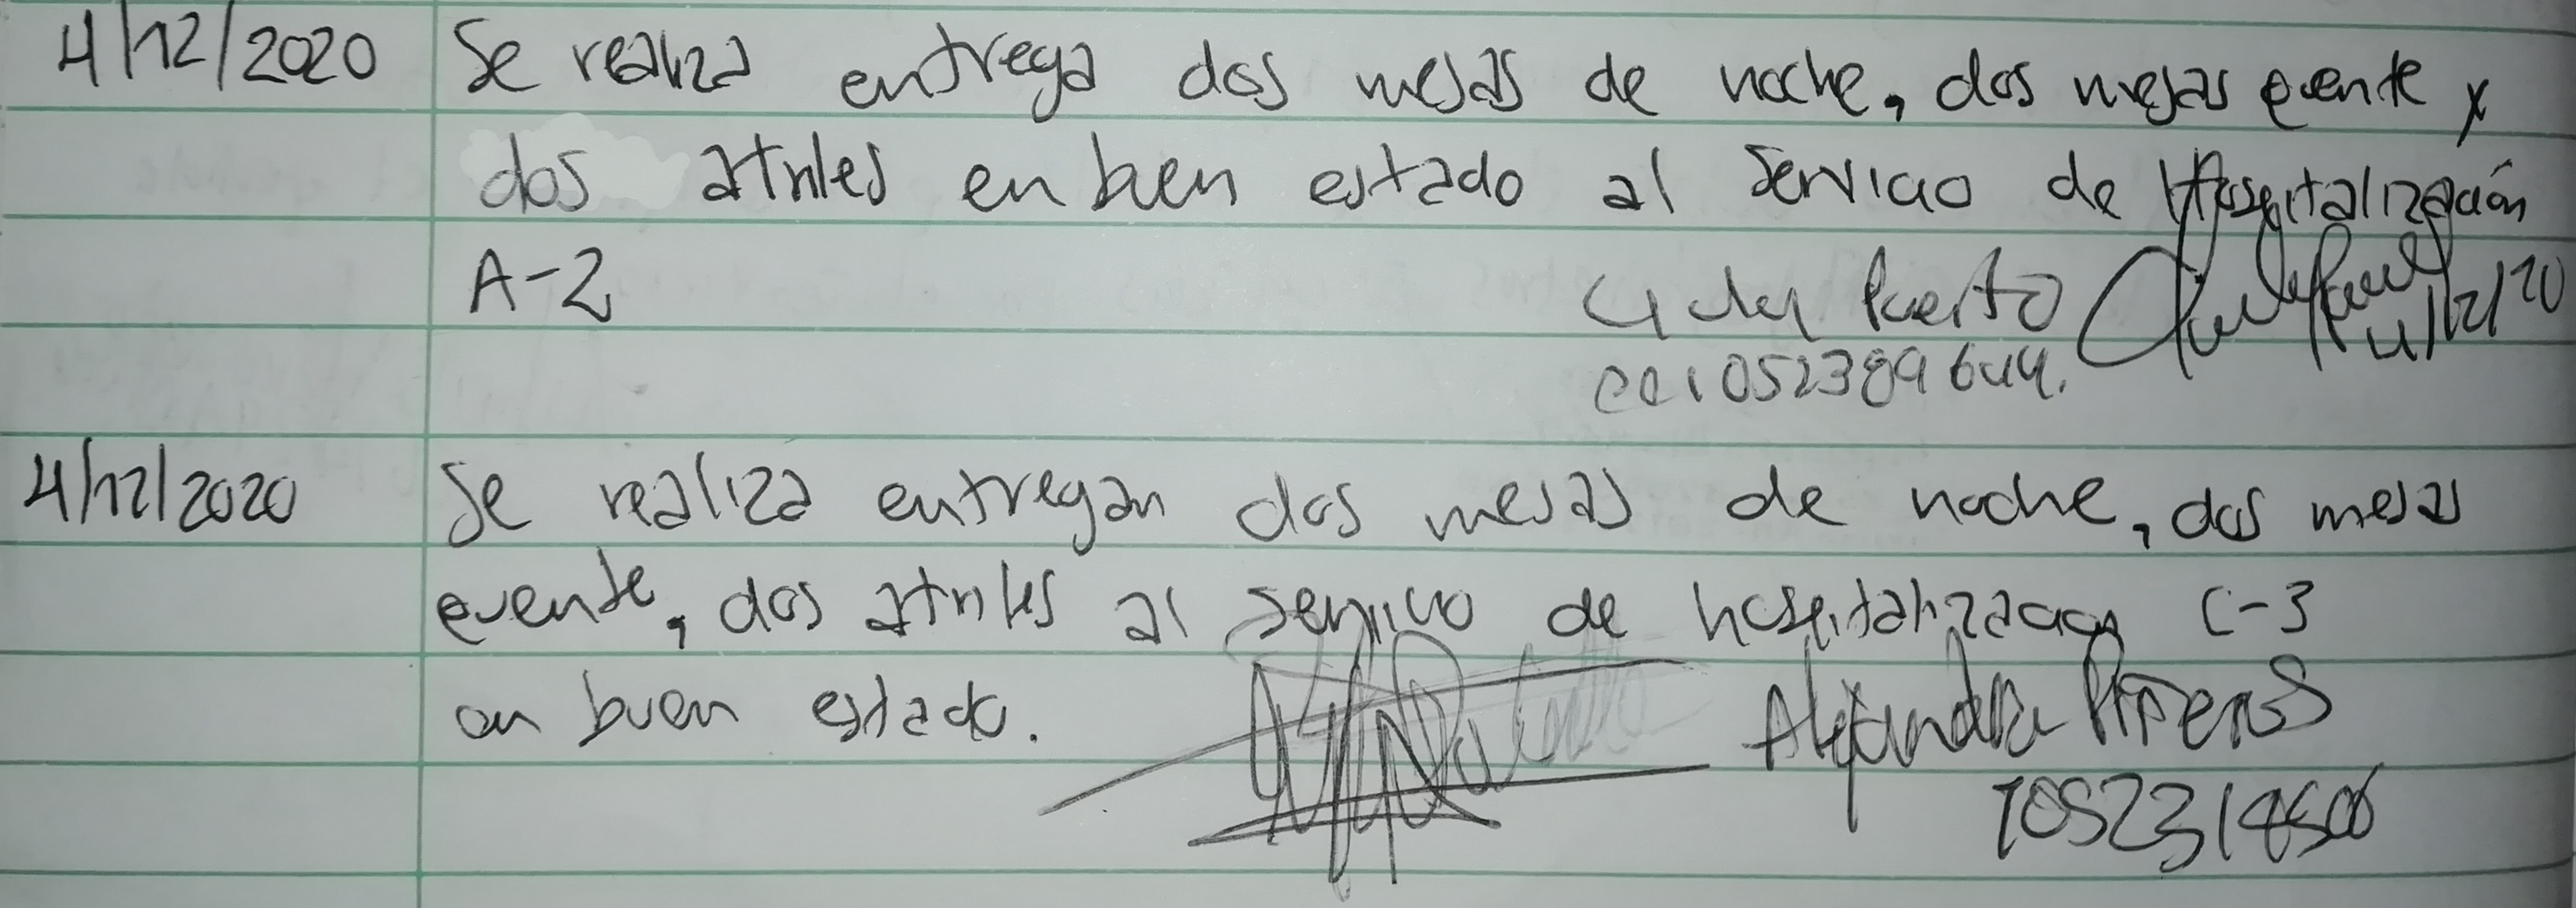 4/12/2020 Se realiza entrega dos mesas de noche, dos mesas evente y
dos atriles en buen estado al servicio de Hospitalización
A-2
Puerto 4/12/20
cc 1052389644.
4/12/2020 Se realiza entregan dos mesas de noche, dos mesas
evente, dos atriles al servicio de hospitalizacion C-3
en buen estado.
Alejandra Piñeros